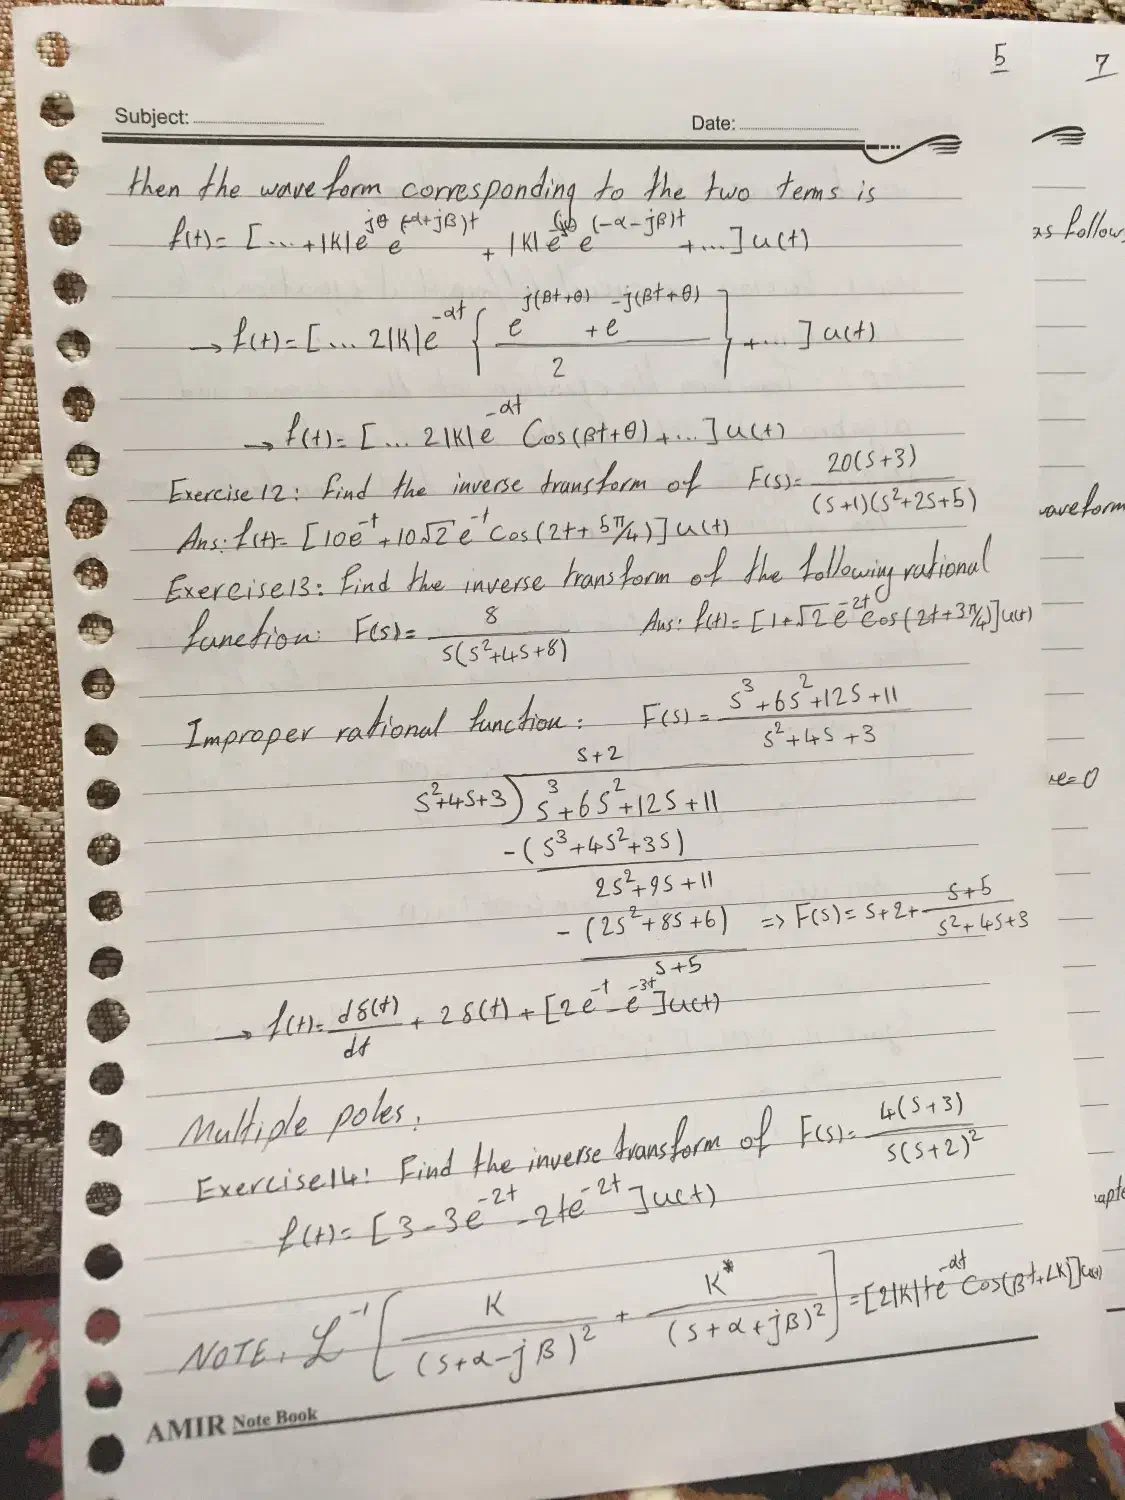 5
7
Subject:
Date:
then the waveform corresponding to the two tems is
f(t)= [... +|K|e^{jθ} e^{(-α+jβ)t} + |K|e e^{(-α-jβ)t} +...] u(t)
as follow
→ f(t)= [... 2|K|e^{-αt} { (e^{j(βt+θ)} + e^{-j(βt+θ)}) / 2 } +...] u(t)
→ f(t)= [... 2|K|e^{-αt} Cos(βt+θ)+...] u(t)
Exercise 12: find the inverse transform of F(s)= 20(s+3) / (s+1)(s²+2s+5)
waveform
Ans: f(t)= [10e^{-t}+10√2 e^{-t} Cos(2t+5π/4)] u(t)
Exercise 13: find the inverse transform of the following rational
function: F(s)= 8 / s(s²+4s+8) Ans: f(t)= [1+√2 e^{-2t} Cos(2t+3π/4)] u(t)
Improper rational function: F(s)= s³+6s²+12s+11 / s²+4s+3
s+2
s²+4s+3 ) s³+6s²+12s+11
=0
-(s³+4s²+3s)
2s²+9s+11
-(2s²+8s+6) => F(s)= s+2+ s+5 / s²+4s+3
s+5
→ f(t)= dδ(t)/dt + 2δ(t)+[2e^{-t}-e^{-3t}]u(t)
Multiple poles:
Exercise 14: Find the inverse transform of F(s)= 4(s+3) / s(s+2)²
f(t)= [3-3e^{-2t}-2te^{-2t}]u(t)
NOTE: ℒ^{-1} [ K / (s+α-jβ)² + K* / (s+α+jβ)² ] = [2|K|te^{-αt} Cos(βt+∠K)]u(t)
AMIR Note Book